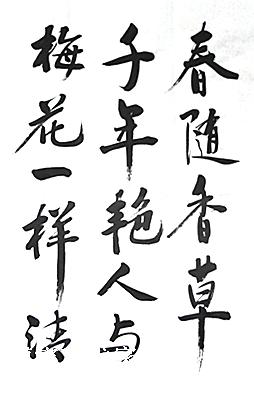 春随香草
千年艳人与
梅花一样清